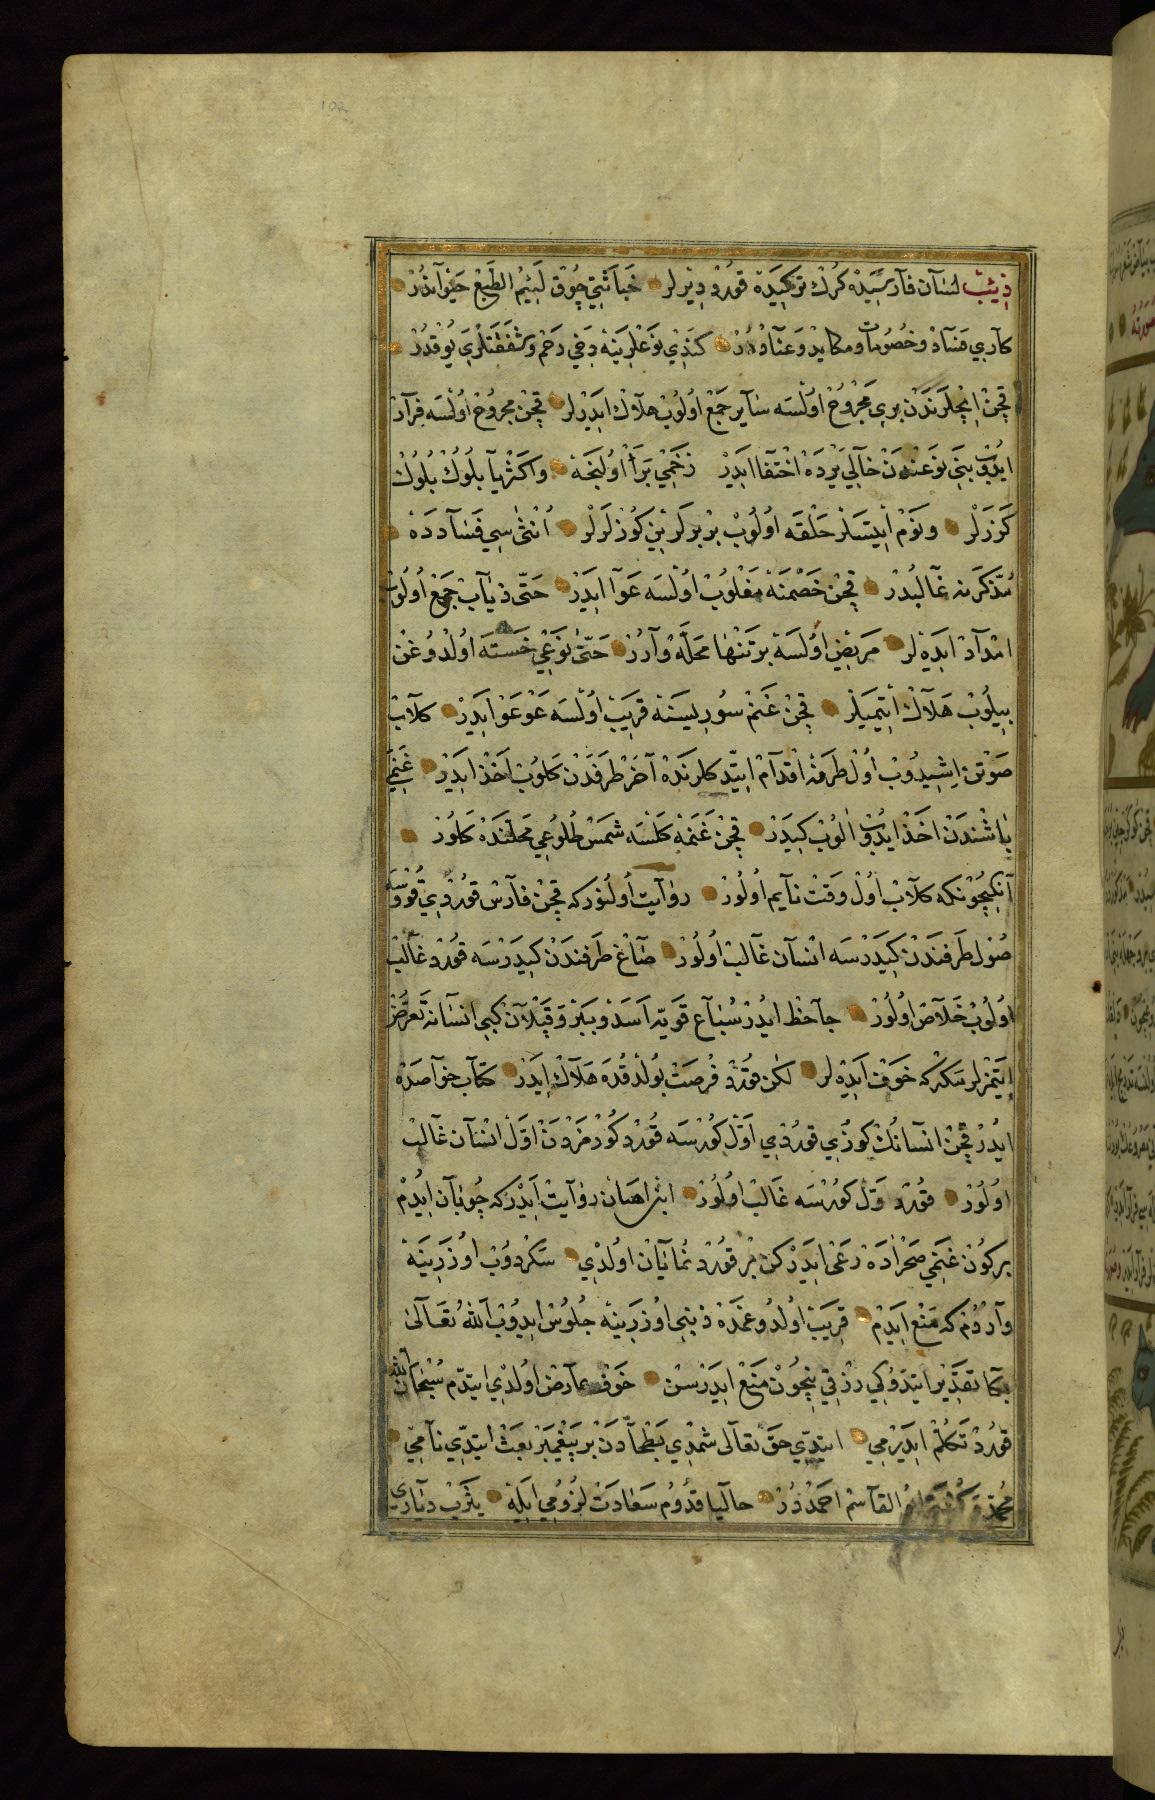 ذئب لسان فارسیده کرک ترکیده قورد دیرلر خباثتی چوق لئیم الطبع حیواندر
کاری فساد و خصومات و مکاید و عناددر کندی نوعلرینه دخی رحم و شفقتلری یوقدر
قچن ایچلرندن بری مجروح اولسه سایر جمع اولوب هلاک ایدرلر قچن مجروح اولسه فرار
ایدوب بنی نوعندن خالی یرده اختفا ایدر زخمی برا اولنجه واکثریا بلوک بلوک
کزرلر ونوم ایتسلر حلقه اولوب بربرلرین کوزلرلر انثی سی فسادده
مذکرنه غالبدر قچن خصمنه مغلوب اولسه عوا ایدر حتی ذیاب جمع اولوب
امداد ایده لر مریض اولسه بر تنها محله وارر حتی نوعی خسته اولدوغن
بیلوب هلاک ایتمیلر قچن غنم سوریسنه قریب اولسه عوعو ایدر کلاب
صوتن اشیدوب اول طرفه اقدام ایتدکلرنده آخر طرفدن کلوب اخذ ایدر غنمی
باشندن اخذ ایدوب الوب کیدر قچن غنمه کلسه شمس طلوعی محلنده کلور
آنکیچونکه کلاب اول وقت نایم اولور روایت اولنورکه قچن فارس قوردی قووسه
صول طرفندن کیدرسه انسان غالب اولور صاغ طرفندن کیدرسه قورد غالب
اولوب خلاص اولور جاحظ ایدر سباع قویه اسد و ببر و قپلان کبی انسانه تعرض
ایتمزلر مکرکه خوف ایده لر لکن قورد فرصت بولدقده هلاک ایدر کتاب خواصده
ایدر قچن انسانک کوزی قوردی اول کورسه قورد کورمزدن اول انسان غالب
اولور قورد اول کورسه غالب اولور ابن اهبان روایت ایدرکه چوبان ایدم
برکون غنمی صحراده رعی ایدرکن بر قورد نمایان اولدی سکردوب اوزرینه
واردم که منع ایدم قریب اولدوغمده ذنبی اوزرینه جلوس ایدوب الله تعالی
بکا تقدیر ایتدوکی رزقی نیچون منع ایدرسن خوف عارض اولدی ایتدم سبحان الله
قورد تکلم ایدرمی ایتدی حق تعالی شمدی بطحادن بر پیغمبر بعث ایتدی نامی
محمد القاسم احمددر حالیا قدوم سعادت لزومی ایله یثرب دیاری